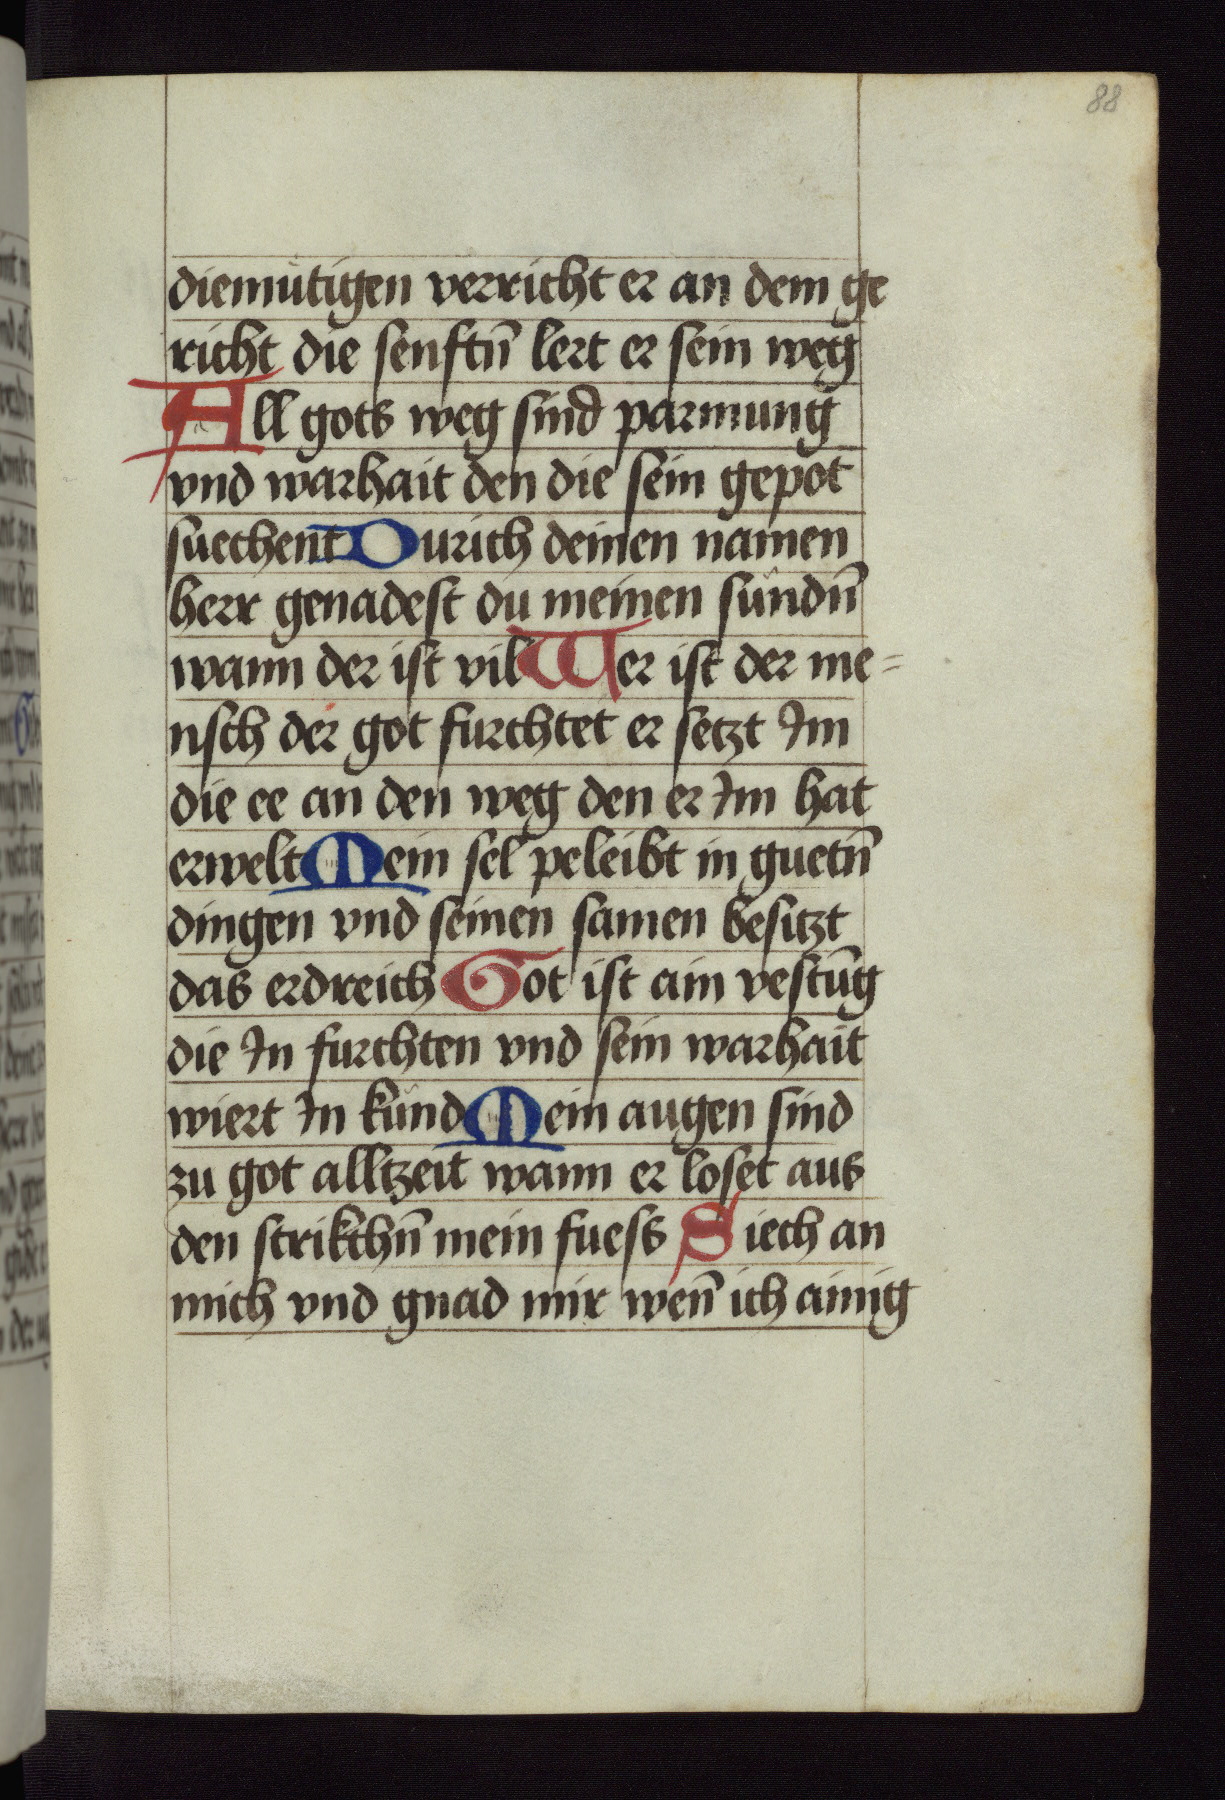 88
diemütigen verricht er an dem ge
richt die senftn̄ lert er sein weg
All gots weg sind parmung
vnd warhait den die sein gepot
suechent Durich deinen namen
herr genadest du meinen sündn̄
wann der ist vil Wer ist der me=
nsch der got furchtet er setzt Im
die ee an den weg den er Im hat
erwelt Mein sel peleibt in guetn̄
dingen vnd seinen samen besitzt
das erdreich Got ist ain vestūg
die In furchten vnd sein warhait
wiert In künd Mein augen sind
zu got alltzeit wann er loset aus
den strikchn̄ mein fuess Siech an
mich vnd gnad mir wen̄ ich ainig